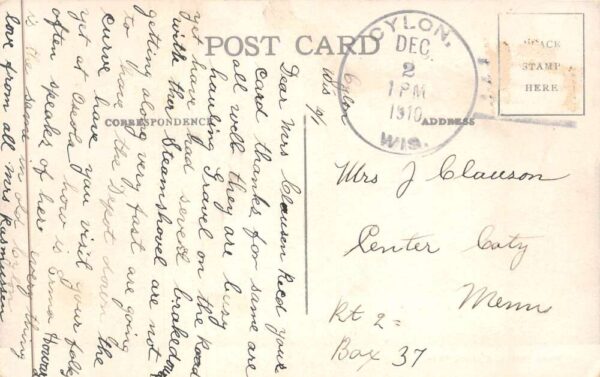 POST CARD
CORRESPONDENCE
ADDRESS
PLACE
STAMP
HERE
CYLON,
DEC.
2
1 PM
1910
WIS.
Cylon
Wis
Dear Mrs Clausen Recd your
card thanks for same are
all well they are busy
hauling Gravel on the Road
yet have had several
with the Steamshovel are not
getting along very fast are going
to have the Depot down the
curve have you visit your folks
yet at how is Erma Howard
often speaks of here every thing
is the same in
love from all Mrs Rasmussen
Mrs J Clauson
Center City
Menn
Rt 2 =
Box 37